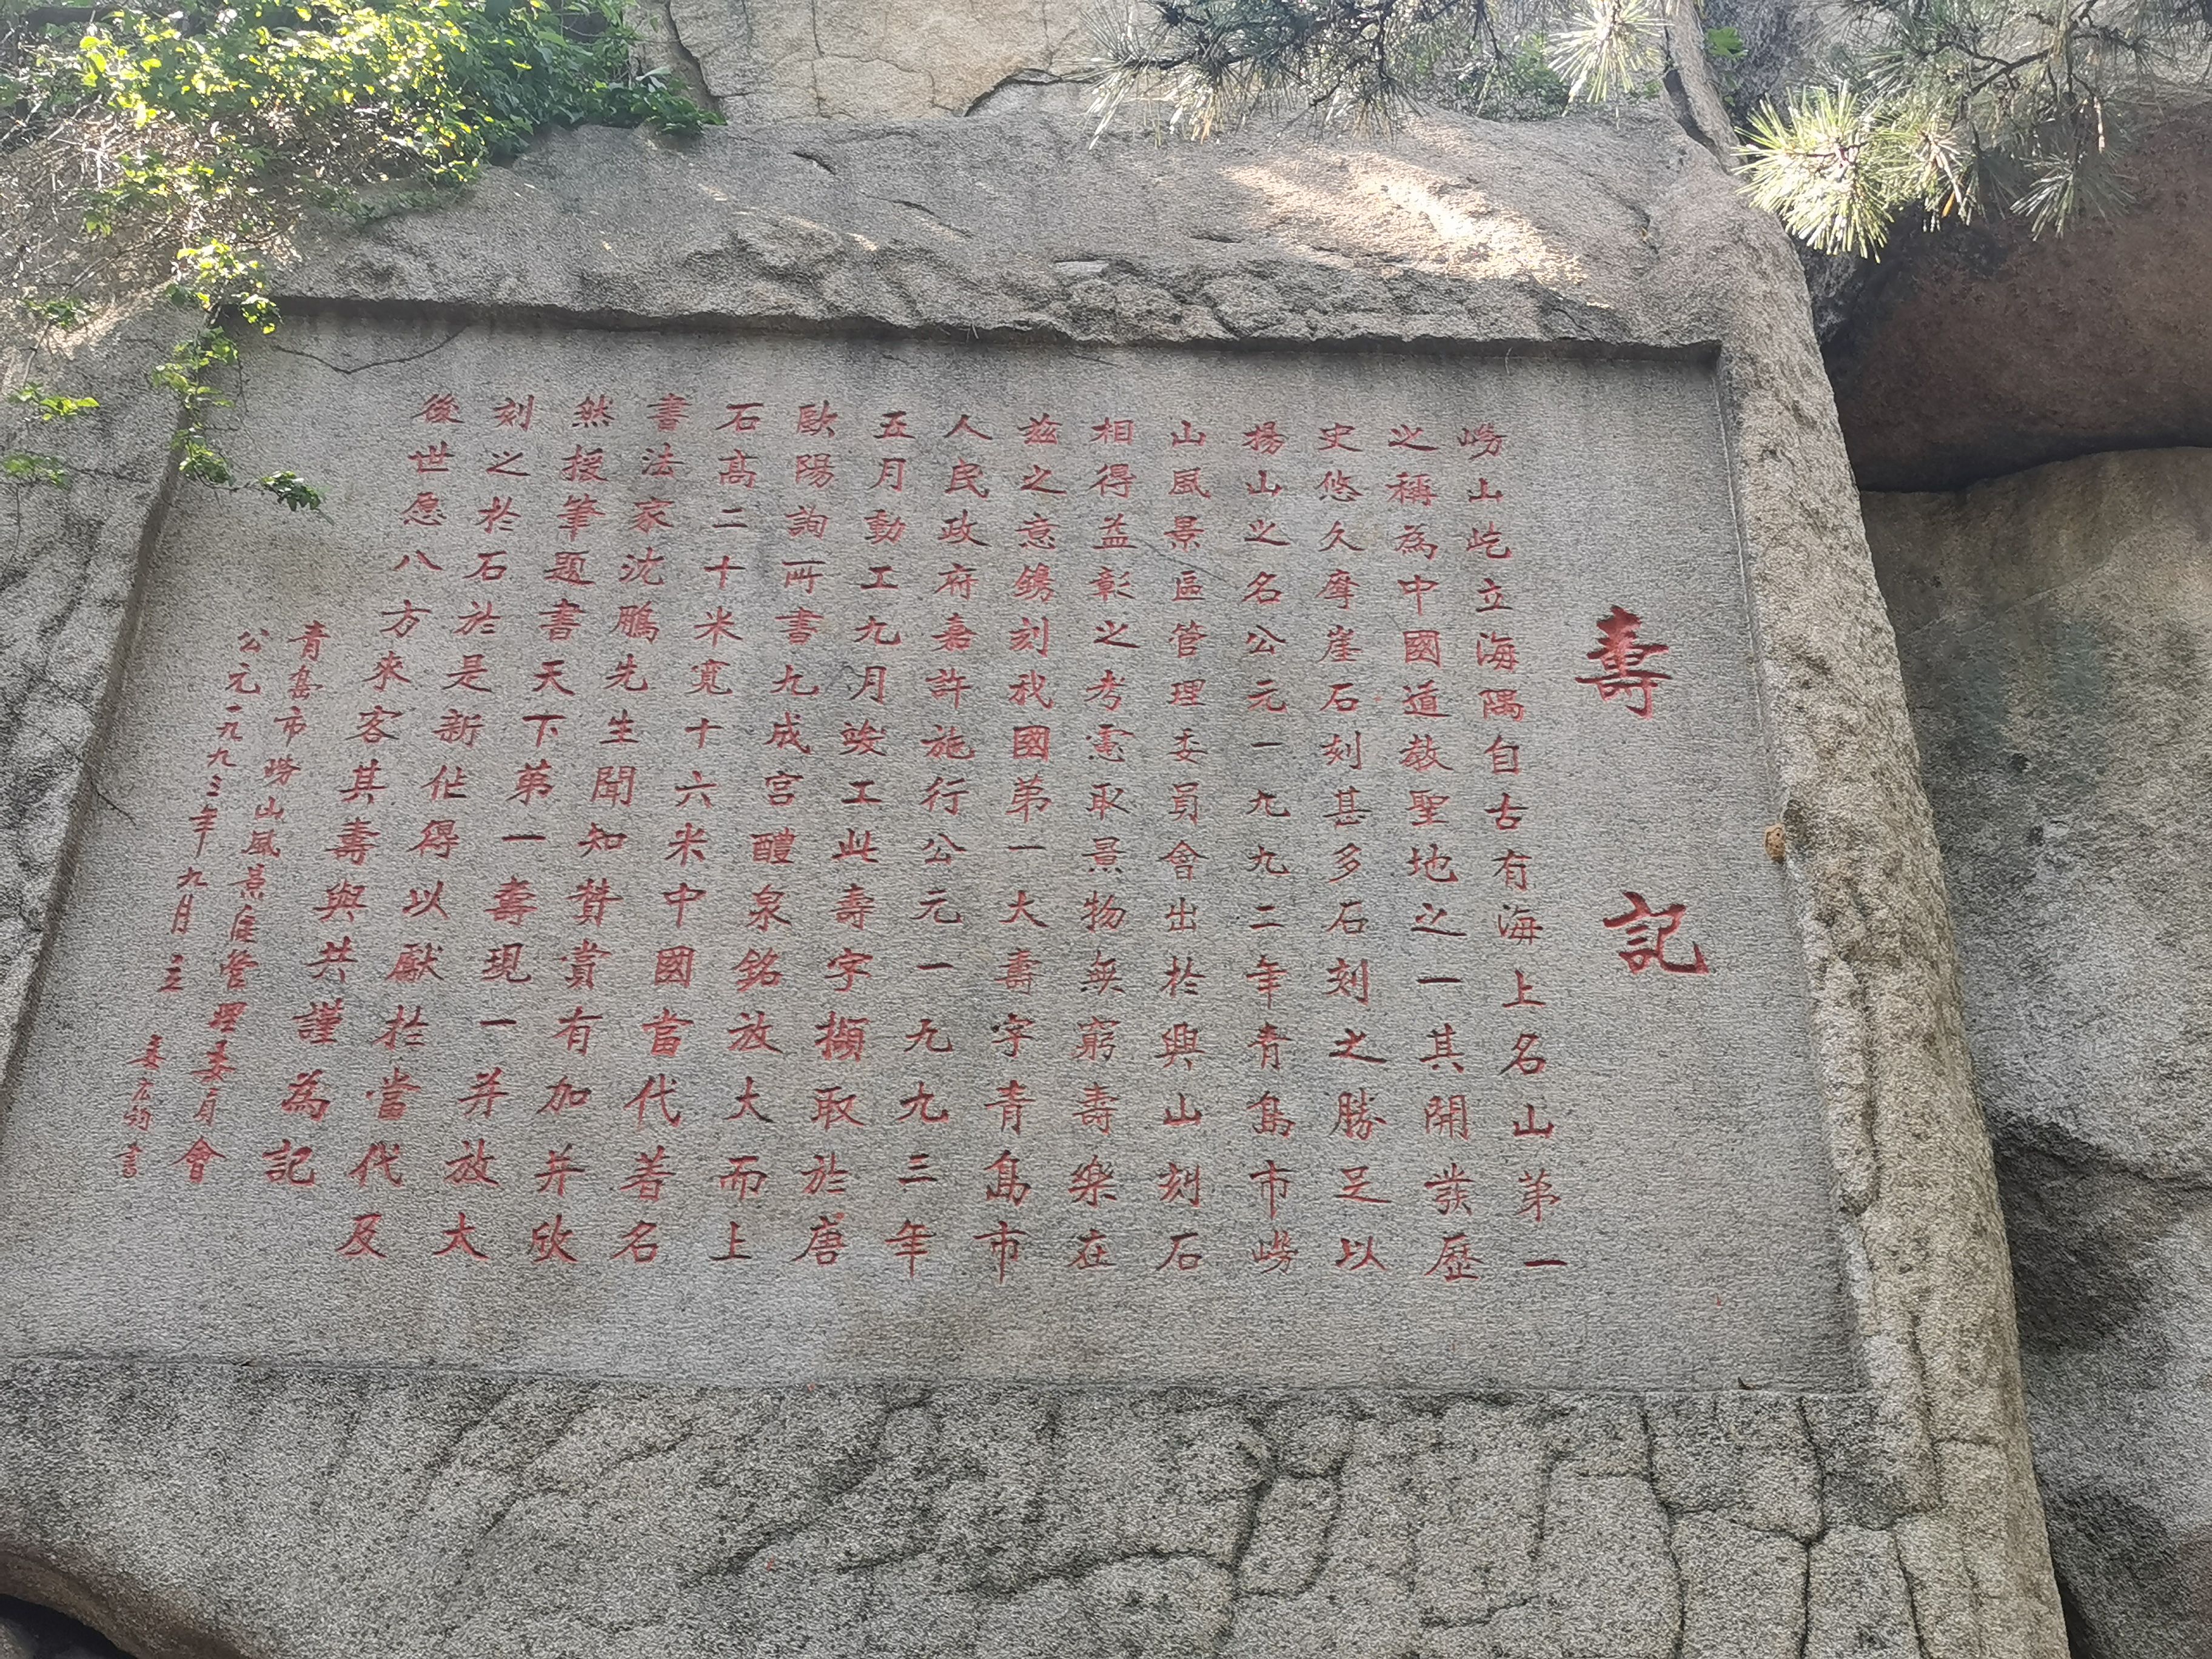 壽記
嶗山屹立海隅自古有海上名山第一
之稱為中國道教聖地之一其開發歷
史悠久摩崖石刻甚多石刻之勝足以
揚山之名公元一九九二年青島市嶗
山風景區管理委員會出於興山刻石
相得益彰之考慮取景物無窮壽樂在
茲之意鐫刻我國第一大壽字青島市
人民政府嘉許施行公元一九九三年
五月動工九月竣工此壽字擷取於唐
歐陽詢所書九成宮醴泉銘放大而上
石高二十米寬十六米中國當代著名
書法家沈鵬先生聞知贊賞有加并欣
然援筆題書天下第一壽現一并放大
刻之於石於是新作得以獻於當代及
後世愿八方來客其壽與共謹為記
青島市嶗山風景區管理委員會
公元一九九三年九月立
書